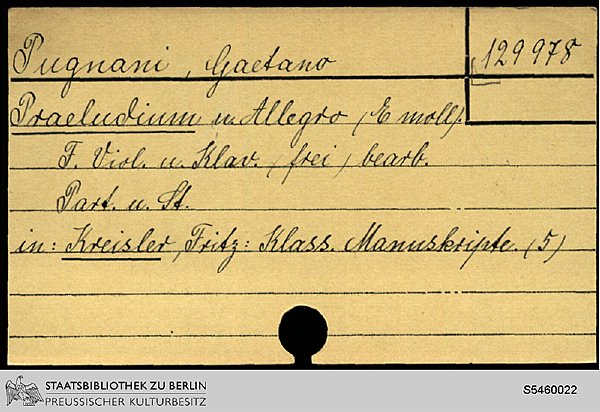 Pugnani, Gaetano
129 978
Praeludium u. Allegro (E moll).
F. Viol. u. Klav. (frei) bearb.
Part. u. St.
in: Kreisler, Fritz: Klass. Manuskripte. (5)
STAATSBIBLIOTHEK ZU BERLIN
PREUSSISCHER KULTURBESITZ
S5460022